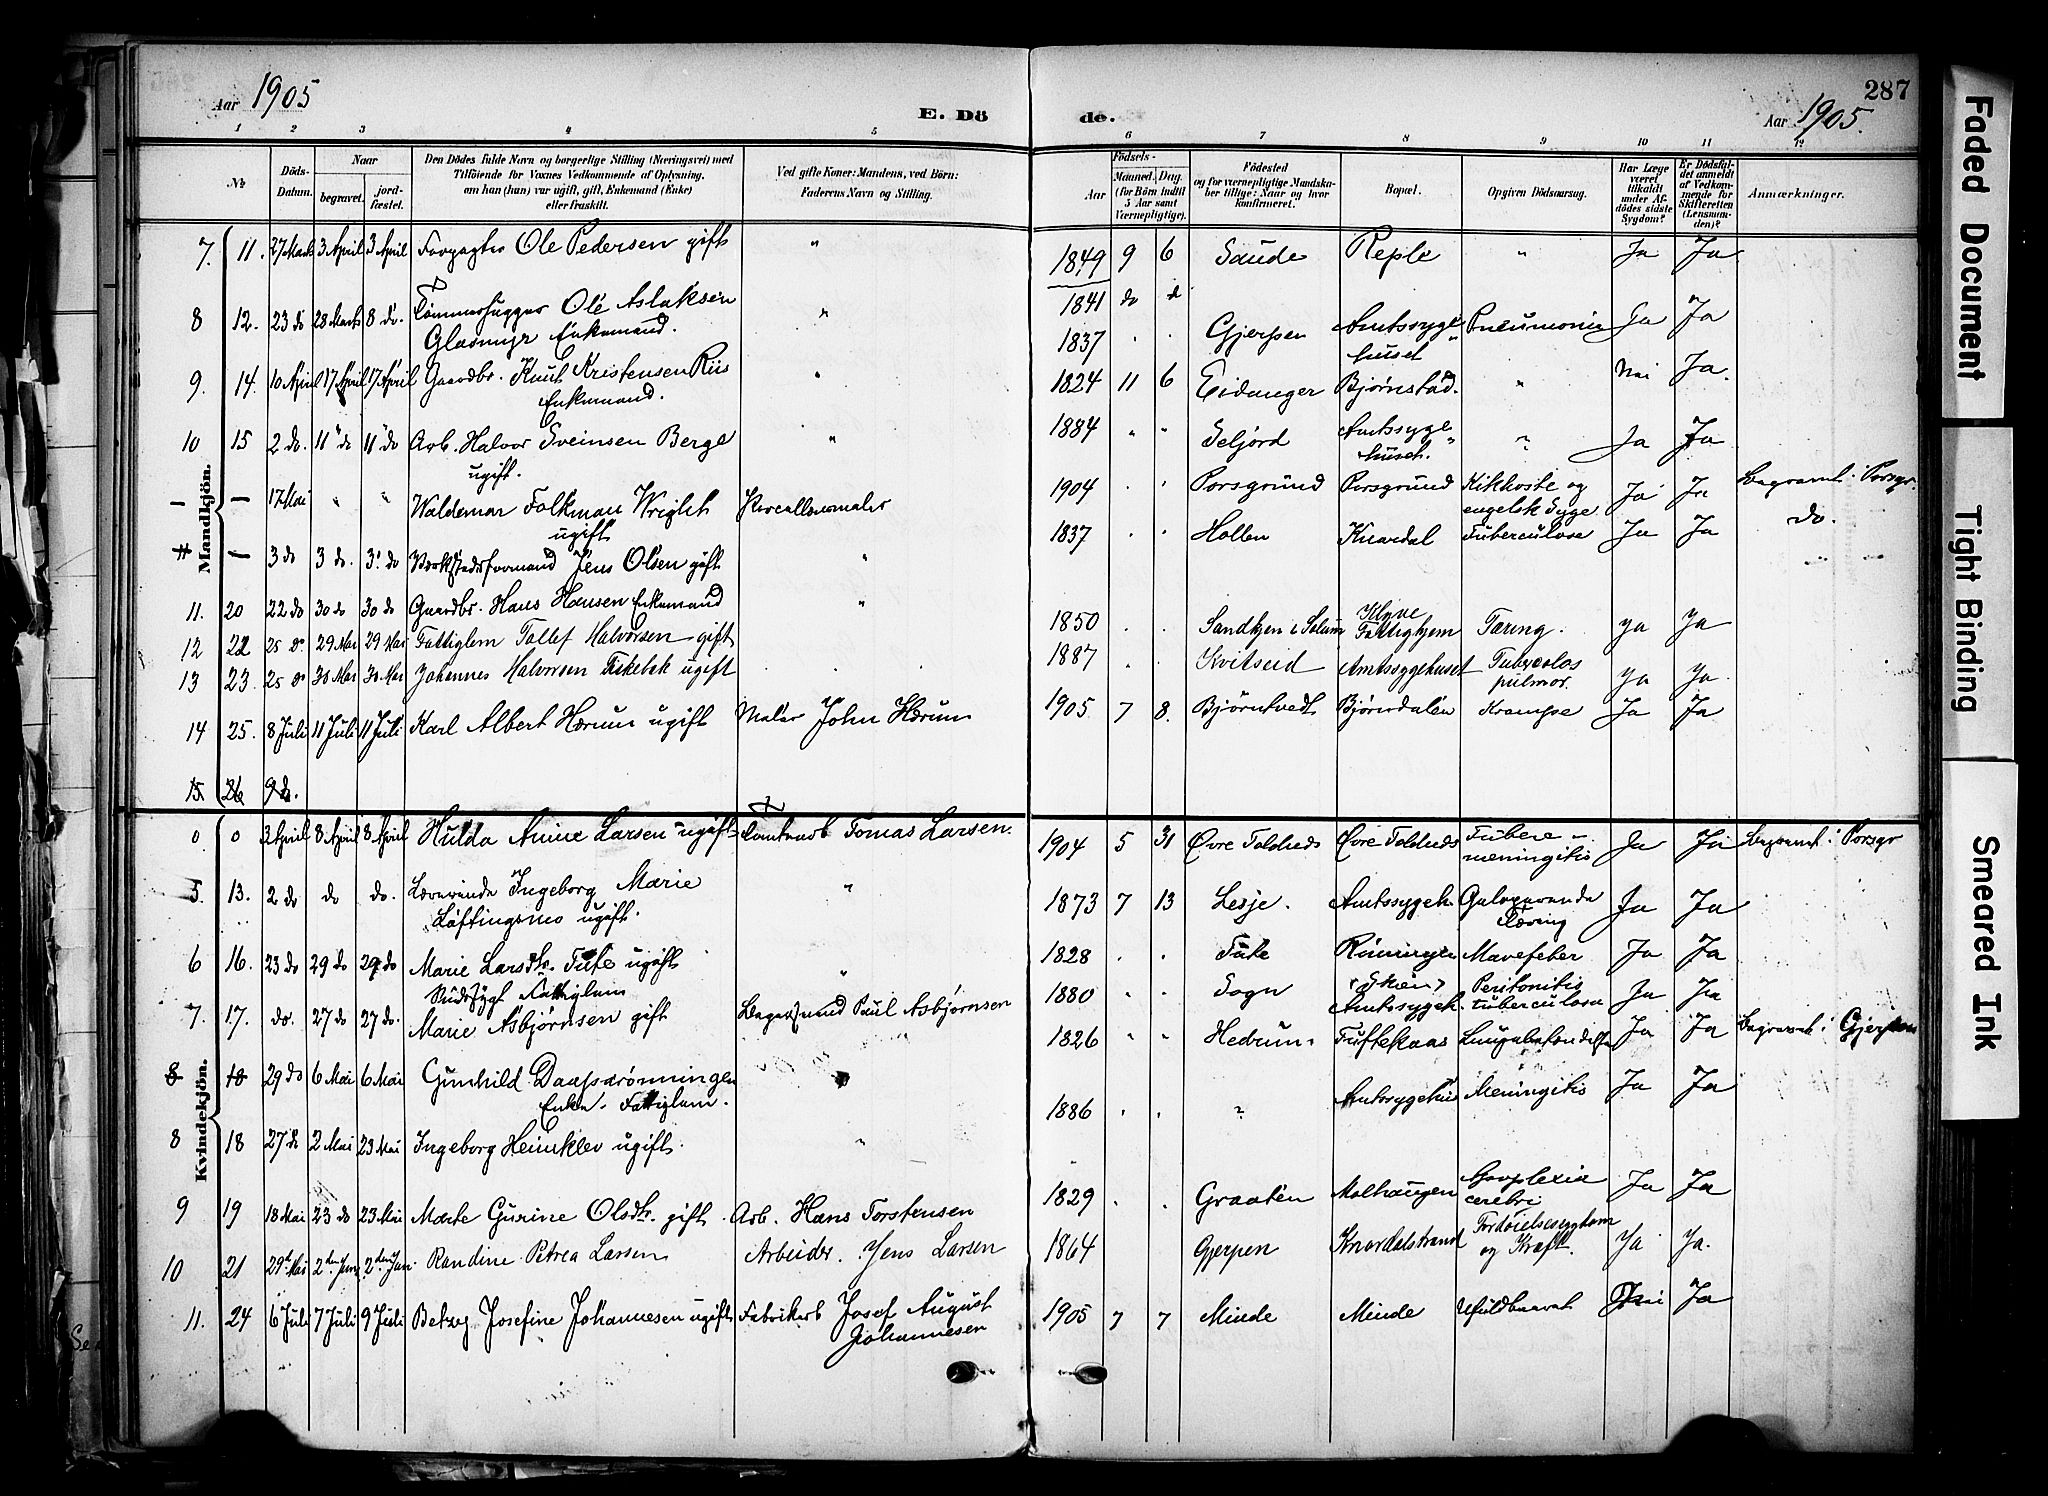 287
Aar 1905
E. Dö
de.
Aar 1905.
1 2 3 4 5 6 7 8 9 10 11 12
№
Döds-Datum.
Naar
begravet.
jord-fæstet.
Den Dödes fulde Navn og borgerlige Stilling (Næringsvei) med
Tilföiende for Voxnes Vedkommende af Oplysning,
om han (hun) var ugift, gift, Enkemand (Enke)
eller fraskilt.
Ved gifte Koner: Mandens, ved Börn:
Faderens Navn og Stilling.
Födsels-
Aar
Maaned. Dag.
(for Börn indtil
5 Aar samt
Værnepligtige).
Födested
og for værnepligtige Mandska-
ber tillige: Naar og hvor
konfirmeret.
Bopæl.
Opgiven Dödsaarsag.
Har Læge
været
tilkaldt
under Af-
dödes sidste
Sygdom?
Er Dödsfal-
det anmeldt
af Vedkom-
mende for
Skifteretten
(Lensman-
den)?
Anmærkninger.
Mandkjön.
7. 11. 27 Marts 3 April 3 April Ole Pedersen gift " 1849 9 6 Saude Reple " Ja Ja
1841 do d
8 12. 23 do 28 Marts 8 do. Tømmerhugger Ole Aslaksen "
Enkemand. 1837 Gjerpen Amtssyge- Pneumonia Ja Ja
huset
9. 14. 10 April 17 April 17 April Gaardbr. Knut Kristensen Riis " 1824 11 6 Eidanger Bjørnstad. " Nei Ja.
Enkemand.
10 15 2 do. 11 do 11 do Arb. Halvor Sveinsen Berge " 1884 " " Seljord Amtssyge- " Ja Ja
ugift. huset.
– – 17 Mai " " Waldemar Folkman Wright 1904 Porsgrund Porsgrund Kikhoste og Ja Ja Begravet i Porsgr.
ugift engelsk Syge
– 3 do 3 do. 3 do Jens Olsen gift " 1837 Hollen Knardal Tuberculose Ja Ja do.
11. 20 22 do 30 do 30 do Gaardbr. Hans Hansen Enkemand "
12 22 25 do 29 Mai 29 Mai Fattiglem Tollef Halvorsen gift 1850 Solum Klyve Fattighjem Tæring. Ja Ja
13 23. 25 do 30 Mai 30 Mai Johannes Halvorsen ugift 1887 Kvitseid Amtssygehuset pulmor. Ja Ja
14 25. 8 Juli 11 Juli 11 Juli Karl Albert Hærum ugift Maler John Hærum 1905 7 8. Bjørntvedt Bjørndalen Krampe Ja Ja
15 26 9 do.
Kvindekjön.
0 0 3 April 8 April 8 April Hulda Anine Larsen ugift Tomas Larsen. 1904 5 31 Øvre Øvre Tubere- Ja Ja Begravet i Porsgr
meningitis
5. 13. 2 do do do. Lærerinde Ingeborg Marie " 1873 7 13 Lesje. Amtssygeh. Galoperende Ja Ja
Løftingsmo ugift. Tæring
6 16. 23 do 29 do 29 do Marie Larsdtr. Tufte ugift " 1828 Tufte Mavefeber Ja Ja
Fattiglem
7. 17. do. 27 do 27 do. Marie Asbjørnsen gift Paul Asbjørnsen 1880 Sogn (Skien) Peritonitis Ja Ja
Amtssygeh. tuberculosa
8 18 29 do 6 Mai 6 Mai Gunhild 1826 " " Hedrum Ja Ja Begravet i Gjerpen
Enke. Fattiglem.
8 18 27 do 2 Mai 23 Mai Ingeborg Heimklev ugift. " 1886 " Amtssygehus Meningitis Ja Ja
9 19 18 Mai 23 do 23 Mai Marte Gurine Olsdtr. gift. Arb. Hans Torstensen 1829 Graaten Apoplexia Ja Ja
cerebri
10 21 29de Mai 2den Juni 2den Juni Randine Petrea Larsen Arbeider. Jens Larsen 1864 Gjerpen Knardalstrand Fordøielsessygdom Ja Ja.
og Kræft.
11. 24 6 Juli 7 Juli 9 Juli Betzy Josefine Johannesen ugift Fabrikarb Josef August 1905 7 7 Minde Minde Nei Ja
Johannesen
Faded Document
Tight Binding
Smeared Ink